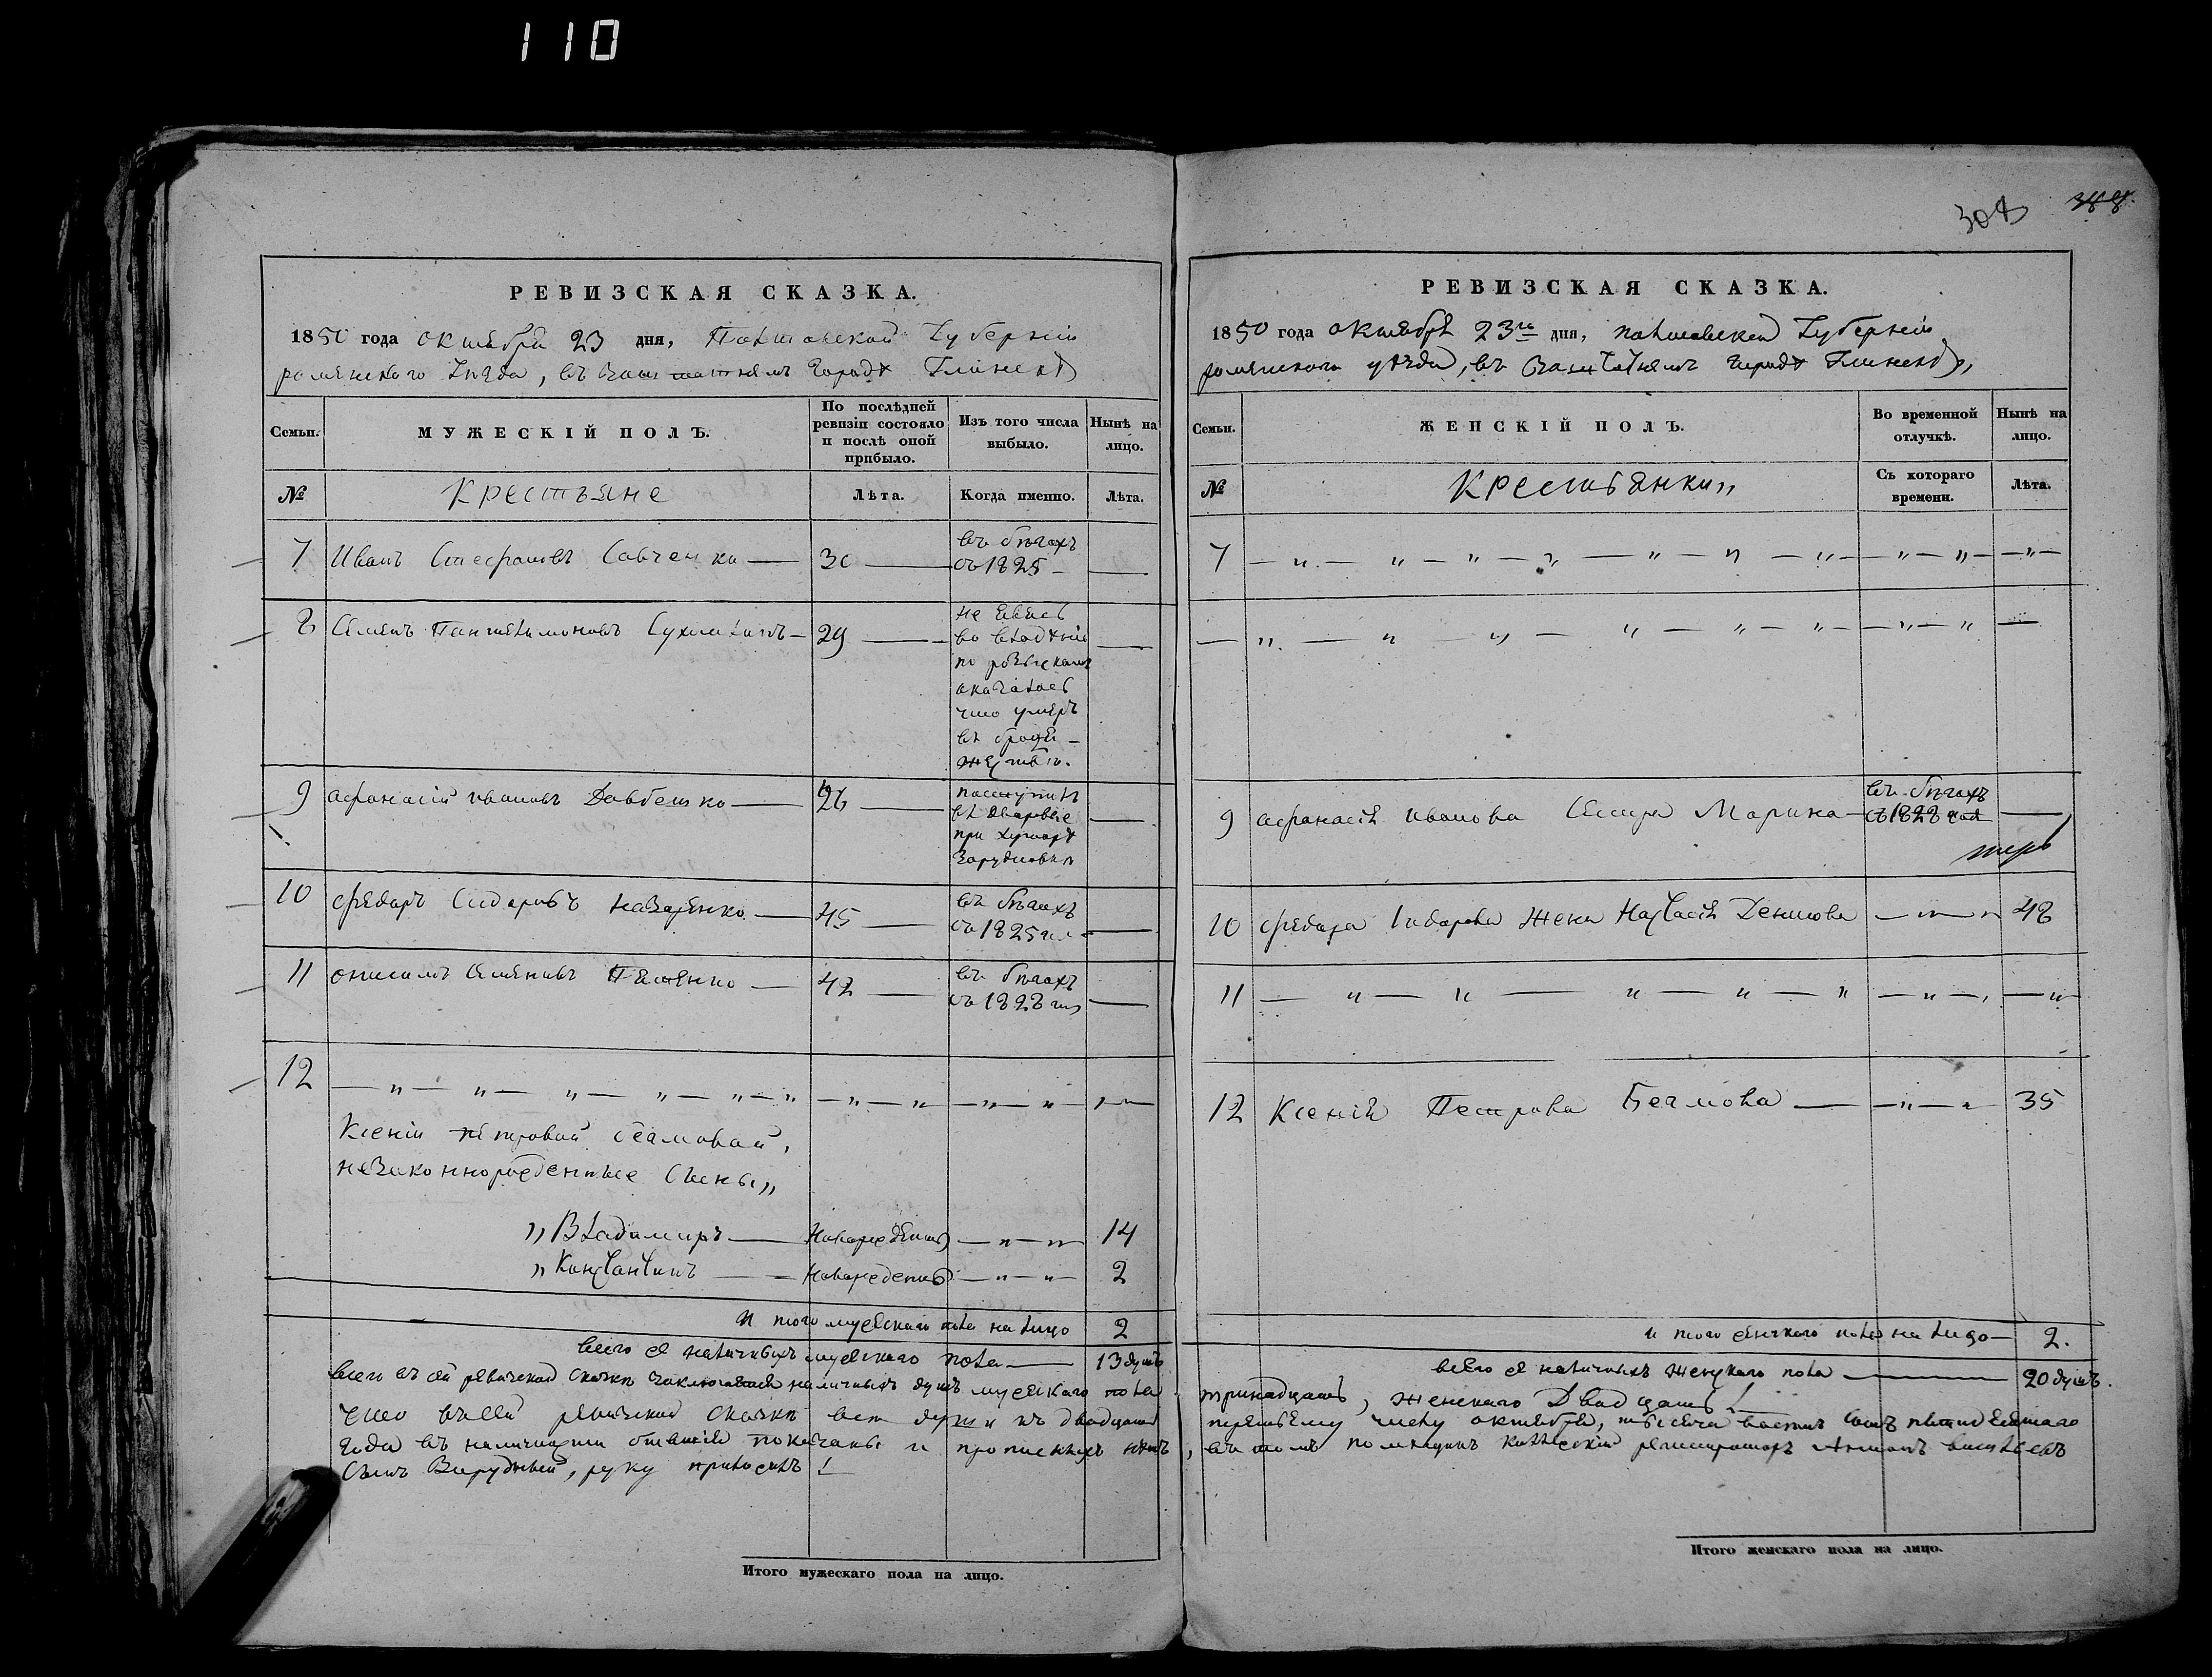 110
РЕВИЗСКАЯ СКАЗКА.
1850 года октября 23 дня, Полтавской Губерніи
роменского уѣзда, въ Заштатнемъ городѣ Глинскѣ
Семьи.
МУЖЕСКІЙ ПОЛЪ.
По послѣдней ревизіи состояло и послѣ оной прибыло.
Изъ того числа выбыло.
Нынѣ на лицо.
№
Крестьяне
Лѣта.
Когда именно.
Лѣта.
7 Иванъ Стефановъ Савченко — 30 — въ бѣгахъ
съ 1825 —
8 Семенъ Пантелимоновъ — 29 — не явясь
во владѣніе
по розыскамъ
оказалось
что умеръ
въ бродя-
жествѣ.
9 афанасій ивановъ Довбешко — 26 — поступилъ
въ дворовые
при хуторѣ
Зарудновкѣ
10 федоръ Сидоровъ назаренко — 45 — въ бѣгахъ
съ 1825 —
11 онисимъ Семеновъ — 42 — въ бѣгахъ
съ 1828
12 — „ — „ — „ — „ — „ — „
Ксеніи петровой
незаконнорожденные Сыны „
„ Владимиръ — Новорожденъ — „ — „ 14
„ Константинъ — Новорожденъ — „ — „ 2
И того мужескаго пола на лицо 2
всего наличныхъ мужескаго пола — 13 душъ
всего въ сей ревизской сказкѣ заключается наличныхъ душъ мужескаго пола
Что въ сей ревизской сказкѣ всѣ души къ двадцать
года въ наличности показаны и прописныхъ нѣтъ
Сынъ Зарудный, руку приложилъ!
Итого мужескаго пола на лицо.
308 388.
РЕВИЗСКАЯ СКАЗКА.
1850 года октября 23го дня, полтавской Губерніи
роменского уѣзда, въ Заштатнемъ городѣ Глинскѣ,
Семьи.
ЖЕНСКІЙ ПОЛЪ.
Во временной отлучкѣ.
Нынѣ на лицо.
№
Крестьянки „
Съ котораго времени.
Лѣта.
7 — „ — „ — „ — „ — „ — „ — „ — „ — „ — „ —
— „ — „ — „ — „ — „ — „ — „ — „ —
9 афанасія иванова Сестра Марина — въ бѣгахъ
съ 1828 —
10 федора Сидорова жена Настасія Денисова — „ — „ 48
11 — „ — „ — „ — „ — „ — „ — , — „
12 Ксенія Петрова — „ — „ 35
и того женскаго пола на лицо — 2.
всего наличныхъ женскаго пола — 20 душъ.
тринадцать, женскаго Двадцать!
третьему числу октября, тысяча восемь сотъ пятидесятаго
, въ томъ помещикъ Коллескій регистраторъ
Итого женскаго пола на лицо.